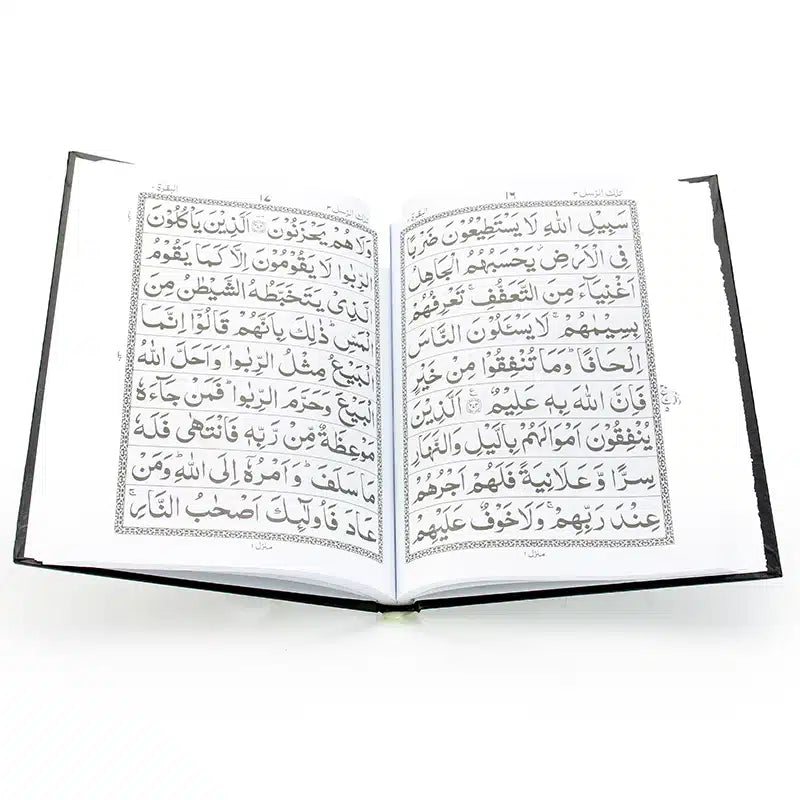 تلك الرسل ٣
١٦
البقرة ٢
سَبِيْلِ اللّٰهِ لَا يَسْتَطِيْعُوْنَ ضَرْبًا
فِى الْاَرْضِ ؗ يَحْسَبُهُمُ الْجَاهِلُ
اَغْنِيَآءَ مِنَ التَّعَفُّفِ ۚ تَعْرِفُهُمْ
بِسِيْمٰىهُمْ ۚ لَا يَسْـَٔلُوْنَ النَّاسَ
اِلْحَافًا ؕ وَمَا تُنْفِقُوْا مِنْ خَيْرٍ
فَاِنَّ اللّٰهَ بِهٖ عَلِيْمٌ ۝ اَلَّذِيْنَ
يُنْفِقُوْنَ اَمْوَالَهُمْ بِالَّيْلِ وَالنَّهَارِ
سِرًّا وَّعَلَانِيَةً فَلَهُمْ اَجْرُهُمْ
عِنْدَ رَبِّهِمْ ۚ وَلَا خَوْفٌ عَلَيْهِمْ
منزل ١
تلك الرسل ٣
١٧
البقرة ٢
وَلَا هُمْ يَحْزَنُوْنَ ۝ اَلَّذِيْنَ يَاْكُلُوْنَ
الرِّبٰوا لَا يَقُوْمُوْنَ اِلَّا كَمَا يَقُوْمُ
الَّذِىْ يَتَخَبَّطُهُ الشَّيْطٰنُ مِنَ
الْمَسِّ ؕ ذٰلِكَ بِاَنَّهُمْ قَالُوْۤا اِنَّمَا
الْبَيْعُ مِثْلُ الرِّبٰوا ۘ وَاَحَلَّ اللّٰهُ
الْبَيْعَ وَحَرَّمَ الرِّبٰوا ؕ فَمَنْ جَآءَهٗ
مَوْعِظَةٌ مِّنْ رَّبِّهٖ فَانْتَهٰى فَلَهٗ
مَا سَلَفَ ؕ وَاَمْرُهٗۤ اِلَى اللّٰهِ ؕ وَمَنْ
عَادَ فَاُولٰٓئِكَ اَصْحٰبُ النَّارِ ۚ
منزل ١